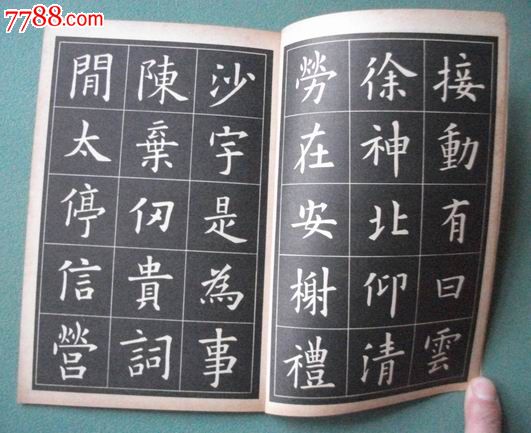 7788.com
接動有曰雲
徐神北仰清
勞在安榭禮
沙宇是為事
陳棄仞貴詞
閒太停信營